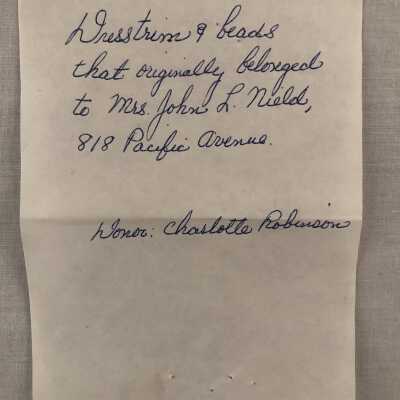 Dresstrim & beads
that originally belonged
to Mrs. John L. Nield,
818 Pacific Avenue.
Donor: Charlotte Robinson